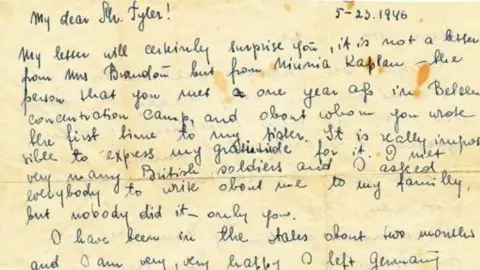 My dear Mr. Tyler! 5-23.1946
My letter will certainly surprise you, it is not a letter
from Mrs. Brandon but from Niunia Kaplan – the
person that you met a one year ago in Belsen
concentration camp, and about whom you wrote
the first time to my sister. It is really impos
sible to express my gratitude for it. I met
very many British soldiers and I asked
everybody to write about me to my familly,
but nobody did it – only you.
I have been in the States about two months
and I am very, very happy I left Germany